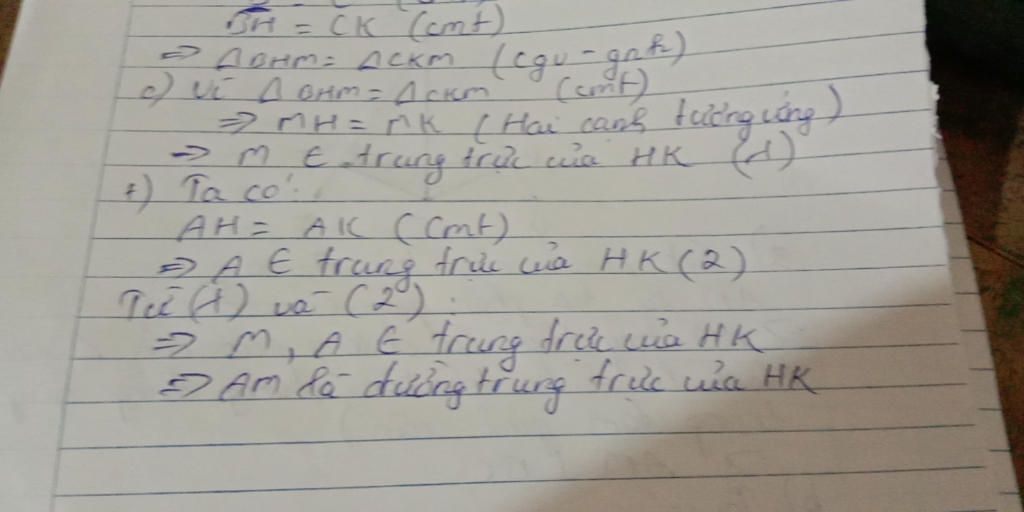 BH = CK (cmt)
=> ΔBHM = ΔCKM (cgv - gnk)
c) Vì ΔBHM = ΔCKM (cmt)
=> MH = MK (Hai cạnh tương ứng)
=> M ∈ trung trực của HK (1)
+) Ta có:
AH = AK (cmt)
=> A ∈ trung trực của HK (2)
Từ (1) và (2) :
=> M, A ∈ trung trực của HK
=> AM là đường trung trực của HK